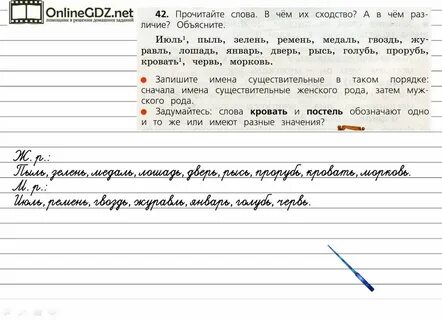 OnlineGDZ.net
помощник в решении домашних заданий
42. Прочитайте слова. В чём их сходство? А в чём раз-
личие? Объясните.
Июль¹, пыль, зелень, ремень, медаль, гвоздь, жу-
равль, лошадь, январь, дверь, рысь, голубь, прорубь,
кровать¹, червь, морковь.
● Запишите имена существительные в таком порядке:
сначала имена существительные женского рода, затем муж-
ского рода.
● Задумайтесь: слова кровать и постель обозначают одно
и то же или имеют разные значения?
Ж. р.:
Пыль, зелень, медаль, лошадь, дверь, рысь, прорубь, кровать, морковь.
М. р.:
Июль, ремень, гвоздь, журавль, январь, голубь, червь.